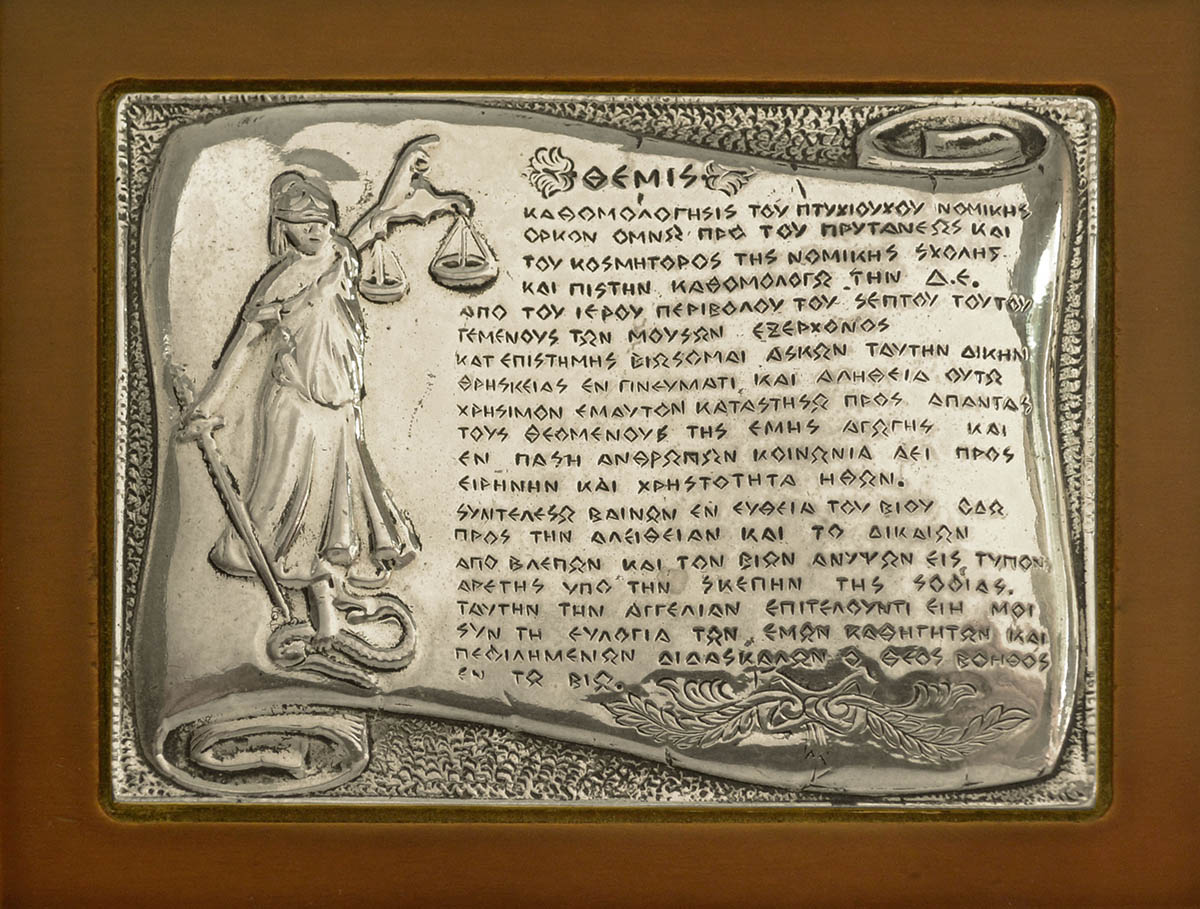 ΘΕΜΙS
ΚΑΘΟΜΟΛΟΓΗSΙS ΤΟΥ ΠΤΥΧΙΟΥΧΟΥ ΝΟΜΙΚΗS
ΟΡΚΟΝ ΟΜΝΩ ΠΡΟ ΤΟΥ ΠΡΥΤΑΝΕΩS ΚΑΙ
ΤΟΥ ΚΟSΜΗΤΟΡΟS ΤΗS ΝΟΜΙΚΗS SΧΟΛΗS
ΚΑΙ ΠΙSΤΗΝ ΚΑΘΟΜΟΛΟΓΩ ΤΗΝ Δ.Ε.
ΑΠΟ ΤΟΥ ΙΕΡΟΥ ΠΕΡΙΒΟΛΟΥ ΤΟΥ SΕΠΤΟΥ ΤΟΥΤΟΥ
ΓΕΜΕΝΟΥS ΤΩΝ ΜΟΥSΩΝ ΕΞΕΡΧΟΝΟS
ΚΑΤ ΕΠΙSΤΗΜΗS ΒΙΩSΟΜΑΙ ΑSΚΩΝ ΤΑΥΤΗΝ ΔΙΚΗΝ
ΘΡΗSΚΕΙΑS ΕΝ ΠΝΕΥΜΑΤΙ ΚΑΙ ΑΛΗΘΕΙΑ ΟΥΤΩ
ΧΡΗSΙΜΟΝ ΕΜΑΥΤΟΝ ΚΑΤΑSΤΗSΩ ΠΡΟS ΑΠΑΝΤΑS
ΤΟΥS ΘΕΟΜΕΝΟΥS ΤΗS ΕΜΗS ΑΓΩΓΗS ΚΑΙ
ΕΝ ΠΑSΗ ΑΝΘΡΩΠΩΝ ΚΟΙΝΩΝΙΑ ΑΕΙ ΠΡΟS
ΕΙΡΗΝΗΝ ΚΑΙ ΧΡΗSΤΟΤΗΤΑ ΗΘΩΝ.
SΥΝΤΕΛΕSΩ ΒΑΙΝΩΝ ΕΝ ΕΥΘΕΙΑ ΤΟΥ ΒΙΟΥ ΟΔΩ
ΠΡΟS ΤΗΝ ΑΛΕΙΘΕΙΑΝ ΚΑΙ ΤΟ ΔΙΚΑΙΩΝ
ΑΠΟ ΒΛΕΠΩΝ ΚΑΙ ΤΟΝ ΒΙΩΝ ΑΝΥΨΩΝ ΕΙS ΤΥΠΟΝ
ΑΡΕΤΗS ΥΠΟ ΤΗΝ SΚΕΠΗΝ ΤΗS SΟΦΙΑS.
ΤΑΥΤΗΝ ΤΗΝ ΑΓΓΕΛΙΑΝ ΕΠΙΤΕΛΟΥΝΤΙ ΕΙΗ ΜΟΙ
SΥΝ ΤΗ ΕΥΛΟΓΙΑ ΤΩΝ ΕΜΩΝ ΚΑΘΗΓΗΤΩΝ ΚΑΙ
ΠΕΦΙΛΗΜΕΝΩΝ ΔΙΔΑSΚΑΛΩΝ Ο ΘΕΟS ΒΟΗΘΟS
ΕΝ ΤΩ ΒΙΩ.